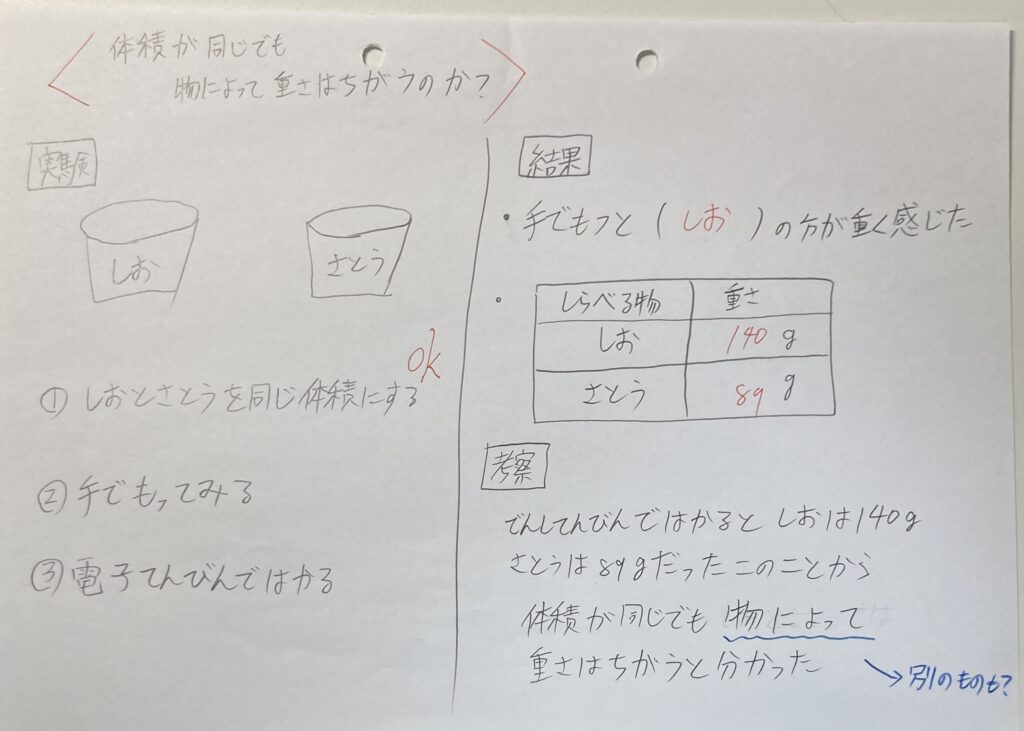 体積が同じでも
物によって重さはちがうのか？
実験
しお
さとう
① しおとさとうを同じ体積にする
ok
② 手でもってみる
③ 電子てんびんではかる
結果
・手でもつと（しお）の方が重く感じた
・
しらべる物 重さ
しお 140 g
さとう 89 g
考察
でんしてんびんではかると しおは140g
さとうは89gだったこのことから
体積が同じでも 物によって
重さはちがうと分かった
→別のものも？